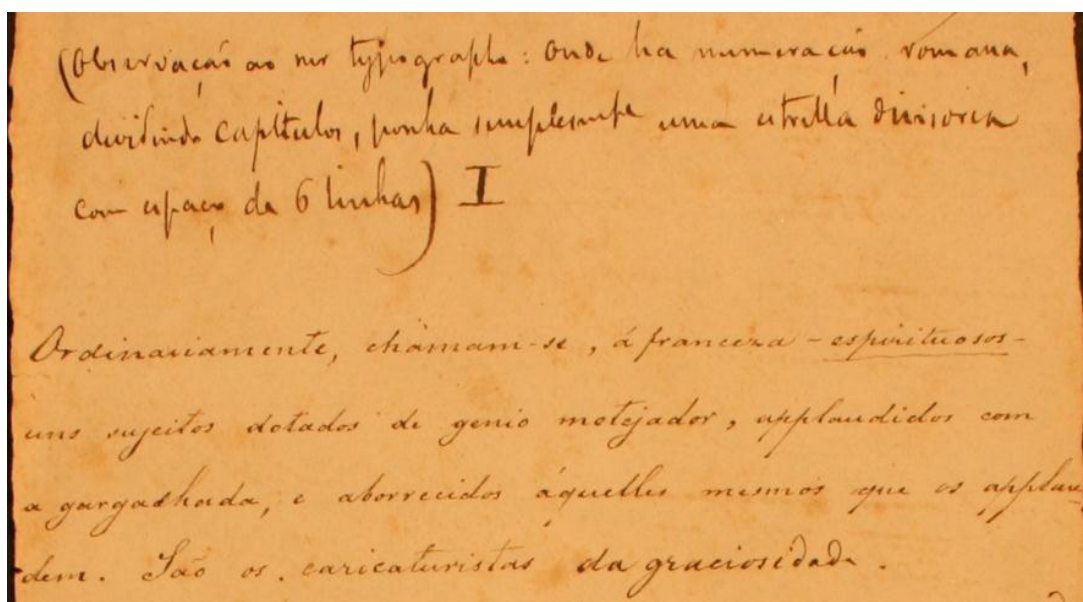 (Observação ao snr typographo: Onde ha numeração romana,
dividindo capitulos, ponha simplesmte uma estrella divisoria
com espaço de 6 linhas) I
Ordinariamente, chamam-se, á franceza - espirituosos -
uns sujeitos dotados de genio motejador, applaudidos com
a gargalhada, e aborrecidos áquelles mesmos que os applau
dem. São os caricaturistas da graciosidade.